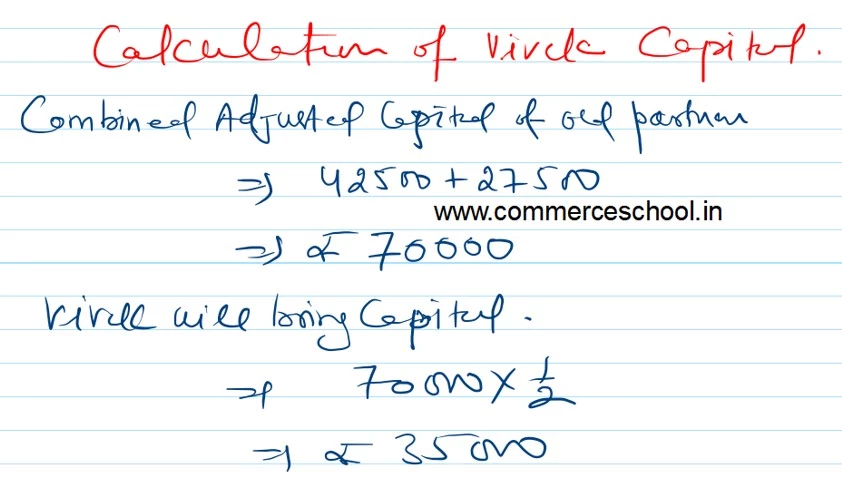 Calculation of Vivek Capital.
Combined Adjusted Capital of old partner
⇒ 42500 + 27500
www.commerceschool.in
⇒ ₹ 70000
Vivek will bring Capital.
⇒ 70000 × 1/2
⇒ ₹ 35000